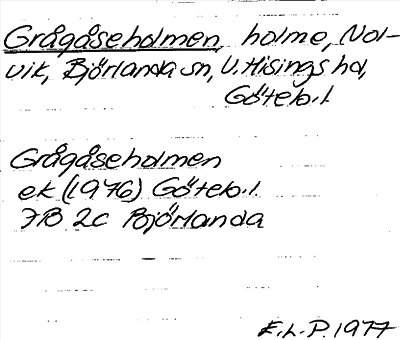 Grågåseholmen, holme, Nol-
vik, Björlanda sn, V. Hisings hd,
Göteb.l.
Grågåseholmen
ek (1976) Göteb.l.
7B 2c Björlanda
E.L.P. 1977